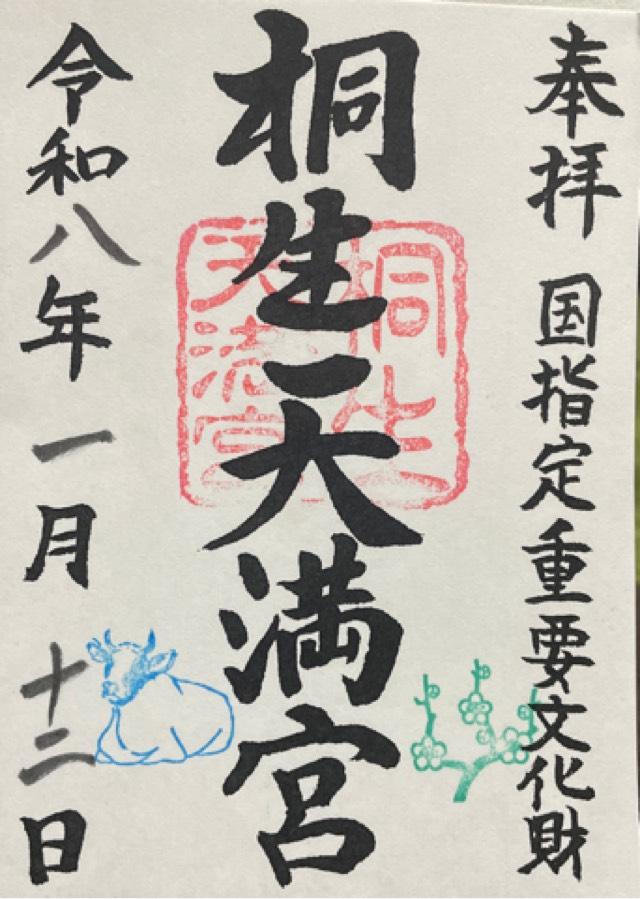 奉拝 国指定重要文化財
桐生天満宮
桐生
天満宮
令和八年一月十二日